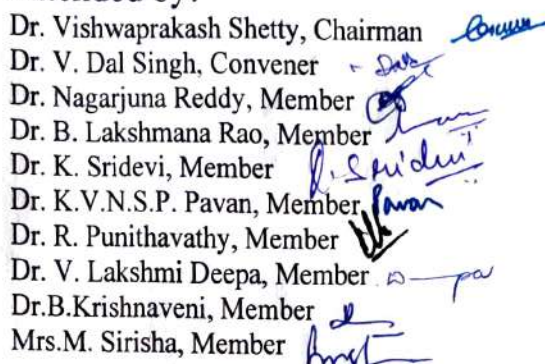 by:
Dr. Vishwaprakash Shetty, Chairman
Dr. V. Dal Singh, Convener
Dr. Nagarjuna Reddy, Member
Dr. B. Lakshmana Rao, Member
Dr. K. Sridevi, Member K. Sridevi
Dr. K.V.N.S.P. Pavan, Member Pavan
Dr. R. Punithavathy, Member
Dr. V. Lakshmi Deepa, Member
Dr.B.Krishnaveni, Member
Mrs.M. Sirisha, Member